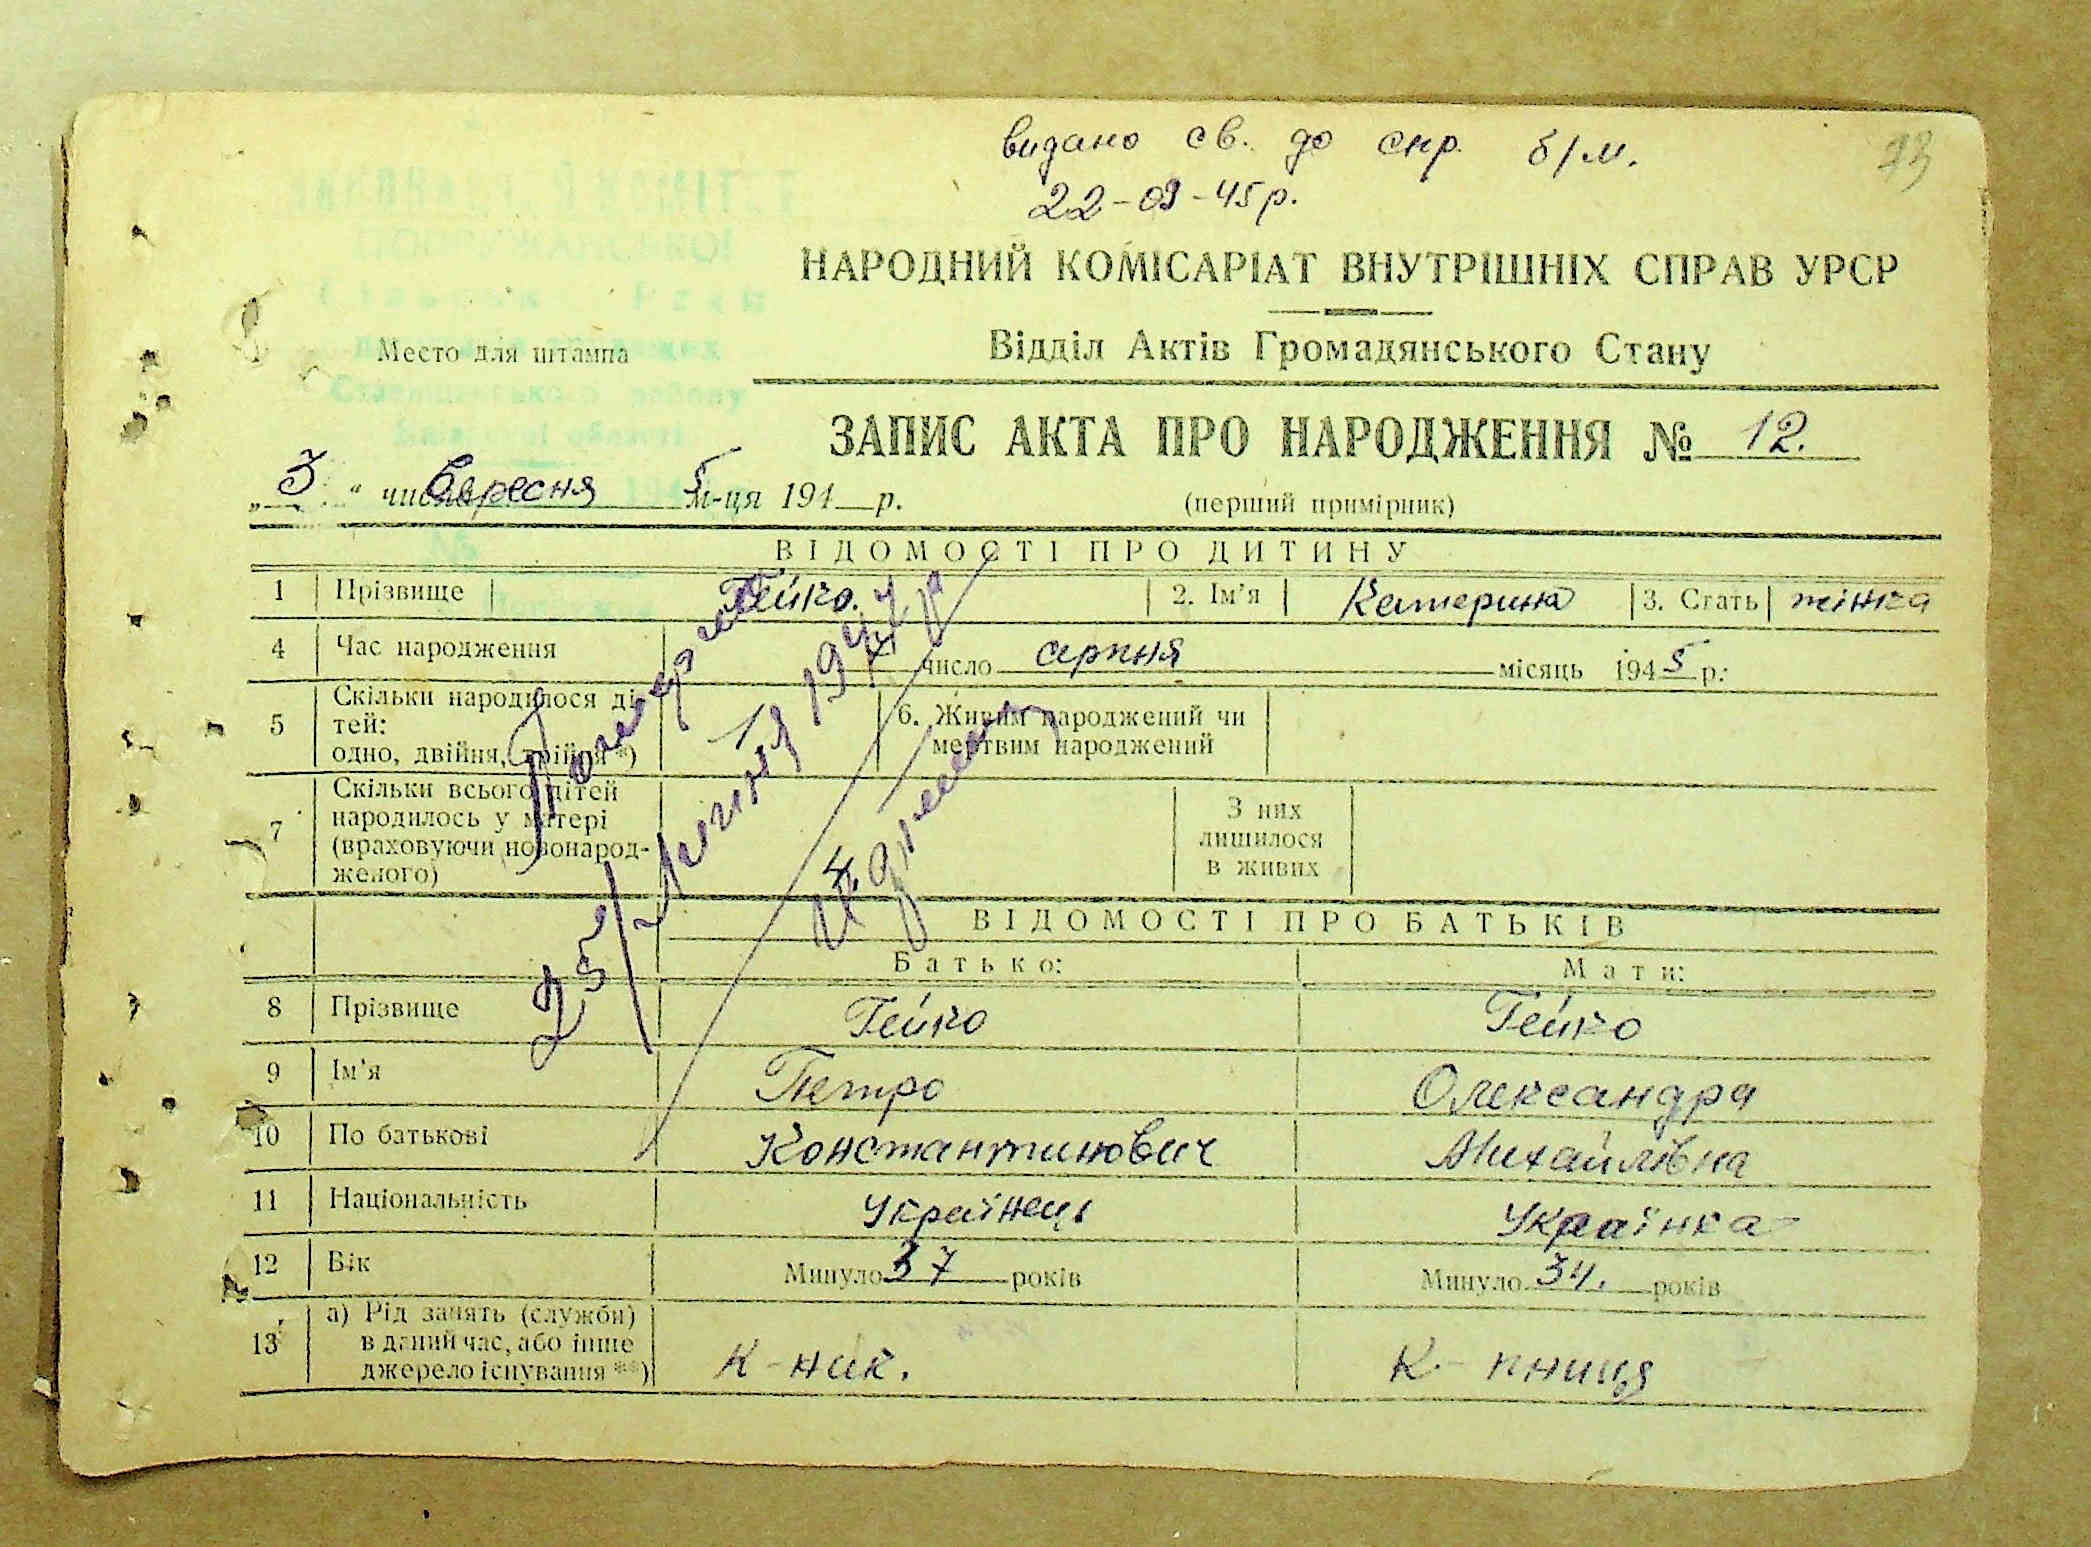 видано св. до спр. б/м.
22-09-45р.
НАРОДНИЙ КОМІСАРІАТ ВНУТРІШНІХ СПРАВ УРСР
Відділ Актів Громадянського Стану
Место для штампа
ЗАПИС АКТА ПРО НАРОДЖЕННЯ № 12.
„3“ числа вересня м-ця 1945 р.
(перший примірник)
ВІДОМОСТІ ПРО ДИТИНУ
1 Прізвище Гейко. 2. Ім'я Катерина 3. Стать жінка
4 Час народження число серпня місяць 1945 р.
5 Скільки народилося ді-
тей:
одно, двійня, трійня *)
6. Живим народжений чи
мертвим народжений
7 Скільки всього дітей
народилось у матері
(враховуючи новонарод-
желого)
З них
лишилося
в живих
Померла
25/ 1947р
ВІДОМОСТІ ПРО БАТЬКІВ
Батько: Мати:
8 Прізвище Гейко Гейко
9 Ім'я Петро Олександра
10 По батькові Константинович Михайлівна
11 Національність Українець Українка
12 Вік Минуло 37 років Минуло 34. років
13 а) Рід занять (служби)
в даний час, або інше
джерело існування **)
К-ник. К-пниця